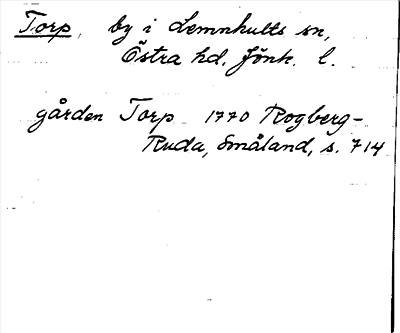 Torp, by i Lemnhults sn,
Östra hd, Jönk. l.
gården Torp 1770 Rogberg-
Ruda, Småland, s. 714